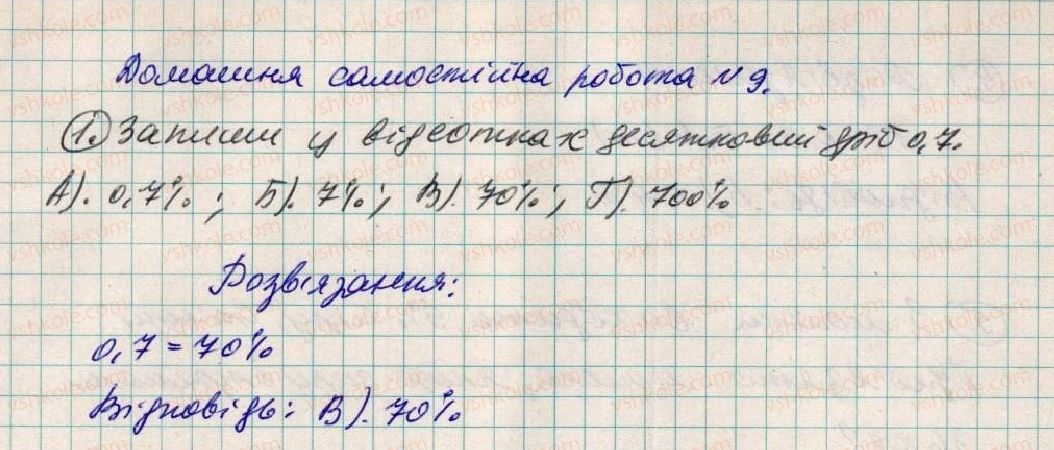 Домашня самостійна робота №9.
1. Запиши у відсотках десятковий дріб 0,7.
А). 0,7%; Б). 7%; В). 70%; Г). 700%
Розв'язання:
0,7 = 70%
Відповідь: В). 70%